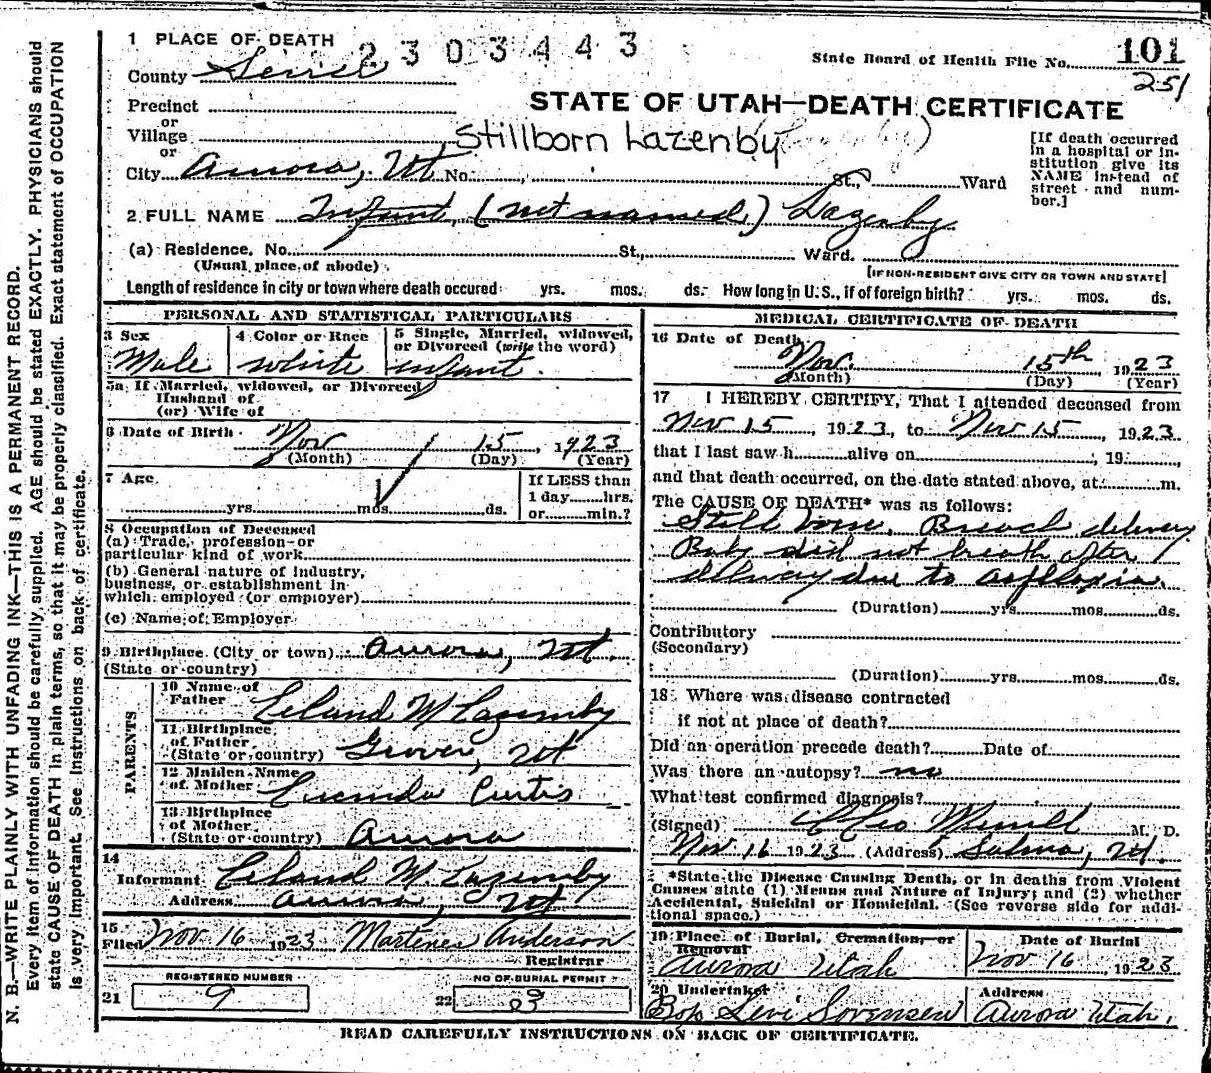 N. B.—WRITE PLAINLY WITH UNFADING INK—THIS IS A PERMANENT RECORD.
Every item of information should be carefully supplied. AGE should be stated EXACTLY. PHYSICIANS should
state CAUSE OF DEATH in plain terms, so that it may be properly classified. Exact statement of OCCUPATION
is very important. See Instructions on back of certificate.
1 PLACE OF DEATH
2303443
State Board of Health File No. 101
251
County Sevier
Precinct
or
Village
or
STATE OF UTAH—DEATH CERTIFICATE
Stillborn Lazenby
[If death occurred in a hospital or institution give its NAME instead of street and number.]
City Aurora, Ut No. St., Ward
2 FULL NAME Infant, (not named) Lazenby
(a) Residence. No. St., Ward.
(Usual place of abode)
[IF NON-RESIDENT GIVE CITY OR TOWN AND STATE]
Length of residence in city or town where death occured yrs. mos. ds. How long in U. S., if of foreign birth? yrs. mos. ds.
PERSONAL AND STATISTICAL PARTICULARS
3 Sex
Male
4 Color or Race
White
5 Single, Married, widowed, or Divorced (write the word)
infant.
5a If Married, widowed, or Divorced
Husband of
(or) Wife of
6 Date of Birth Nov 15, 1923
(Month) (Day) (Year)
7 Age
yrs. mos. ds.
If LESS than
1 day hrs.
or min.?
8 Occupation of Deceased
(a) Trade, profession or
particular kind of work
(b) General nature of industry,
business, or establishment in
which employed (or employer)
(c) Name of Employer
9 Birthplace (City or town) Aurora, Ut.
(State or country)
PARENTS
10 Name of
Father Leland M Lazenby
11 Birthplace
of Father
(State or country) Grover, Ut
12 Maiden Name
of Mother Lucinda Curtis
13 Birthplace
of Mother
(State or country) Aurora
14
Informant Leland M. Lazenby
Address Aurora, Ut
15
Filed Nov 16 1923 Martenes Anderson
Registrar
REGISTERED NUMBER
21 9
NO OF BURIAL PERMIT
22
MEDICAL CERTIFICATE OF DEATH
16 Date of Death
Nov. 15th 1923
(Month) (Day) (Year)
17 I HEREBY CERTIFY, That I attended deceased from
Nov 15, 1923, to Nov 15, 1923
that I last saw h alive on , 19 ,
and that death occurred, on the date stated above, at m.
The CAUSE OF DEATH* was as follows:
Still borne. Breach delivery
Baby did not breath after
delivery due to asphloxia.
(Duration) yrs mos. ds.
Contributory
(Secondary)
(Duration) yrs. mos. ds.
18 Where was disease contracted
if not at place of death?
Did an operation precede death? Date of
Was there an autopsy? no
What test confirmed diagnosis?
(Signed) Merrill M. D.
Nov 16 1923 (Address) Salina, Ut.
*State the Disease Causing Death, or in deaths from Violent
Causes state (1) Means and Nature of Injury; and (2) whether
Accidental, Suicidal or Homicidal. (See reverse side for addi-
tional space.)
19 Place of Burial, Cremation, or
Removal
Aurora Utah
Date of Burial
Nov 16, 1923
20 Undertaker
Bop Levi Sorensen
Address
Aurora Utah.
READ CAREFULLY INSTRUCTIONS ON BACK OF CERTIFICATE.